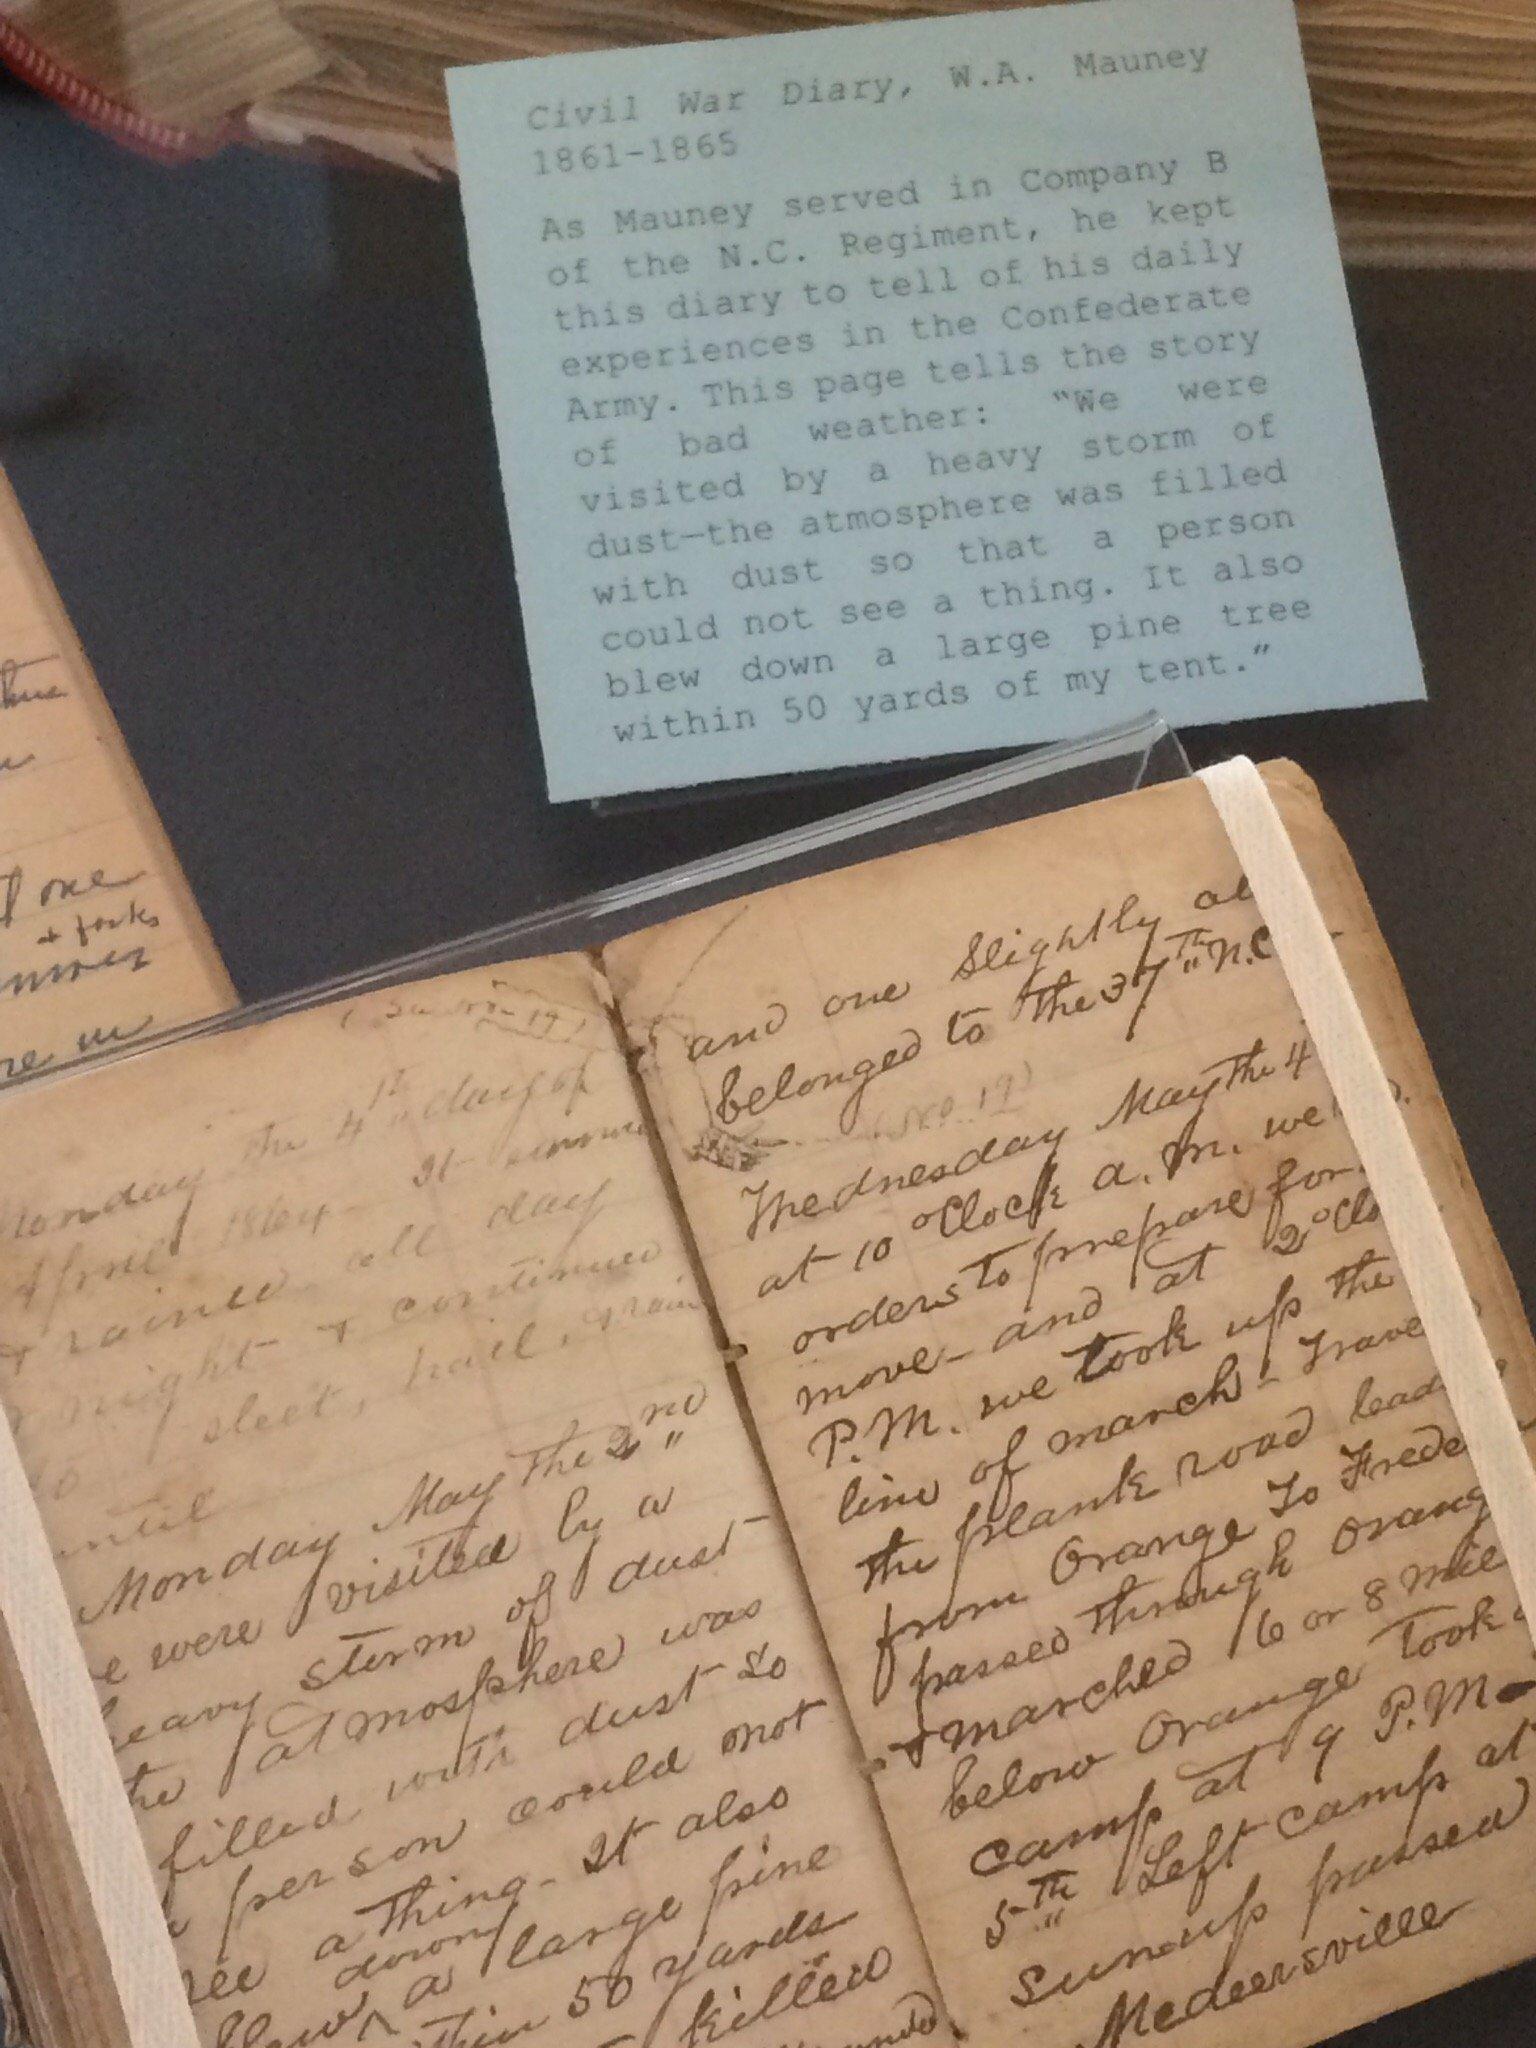 Civil War Diary, W.A. Mauney
1861-1865
As Mauney served in Company B
of the N.C. Regiment, he kept
this diary to tell of his daily
experiences in the Confederate
Army. This page tells the story
of bad weather: "We were
visited by a heavy storm of
dust—the atmosphere was filled
with dust so that a person
could not see a thing. It also
blew down a large pine tree
within 50 yards of my tent."
one
+ forks
Monday the 4th day of
April 1864 It
& rained all day
night & continued
sleet, hail, & rain
until
Monday May the 2nd
were visited by a
heavy storm of dust-
the atmosphere was
filled with dust so
person could not
see a thing- It also
down
blew ^ a large pine
within 50 yards
killed
and one slightly
belonged to the 37th N.C.
Wednesday May the 4
at 10 oClock a.m. we
orders to prepare for
move- and at 2 oClo
P.M. we took up the
line of march- Trave
the plank road leading
from Orange To Frede
passed through Orang
& marched 6 or 8 mile
below Orange Took
camp at 9 P.M-
5th Left camp at
sun-up passed
Medeersville